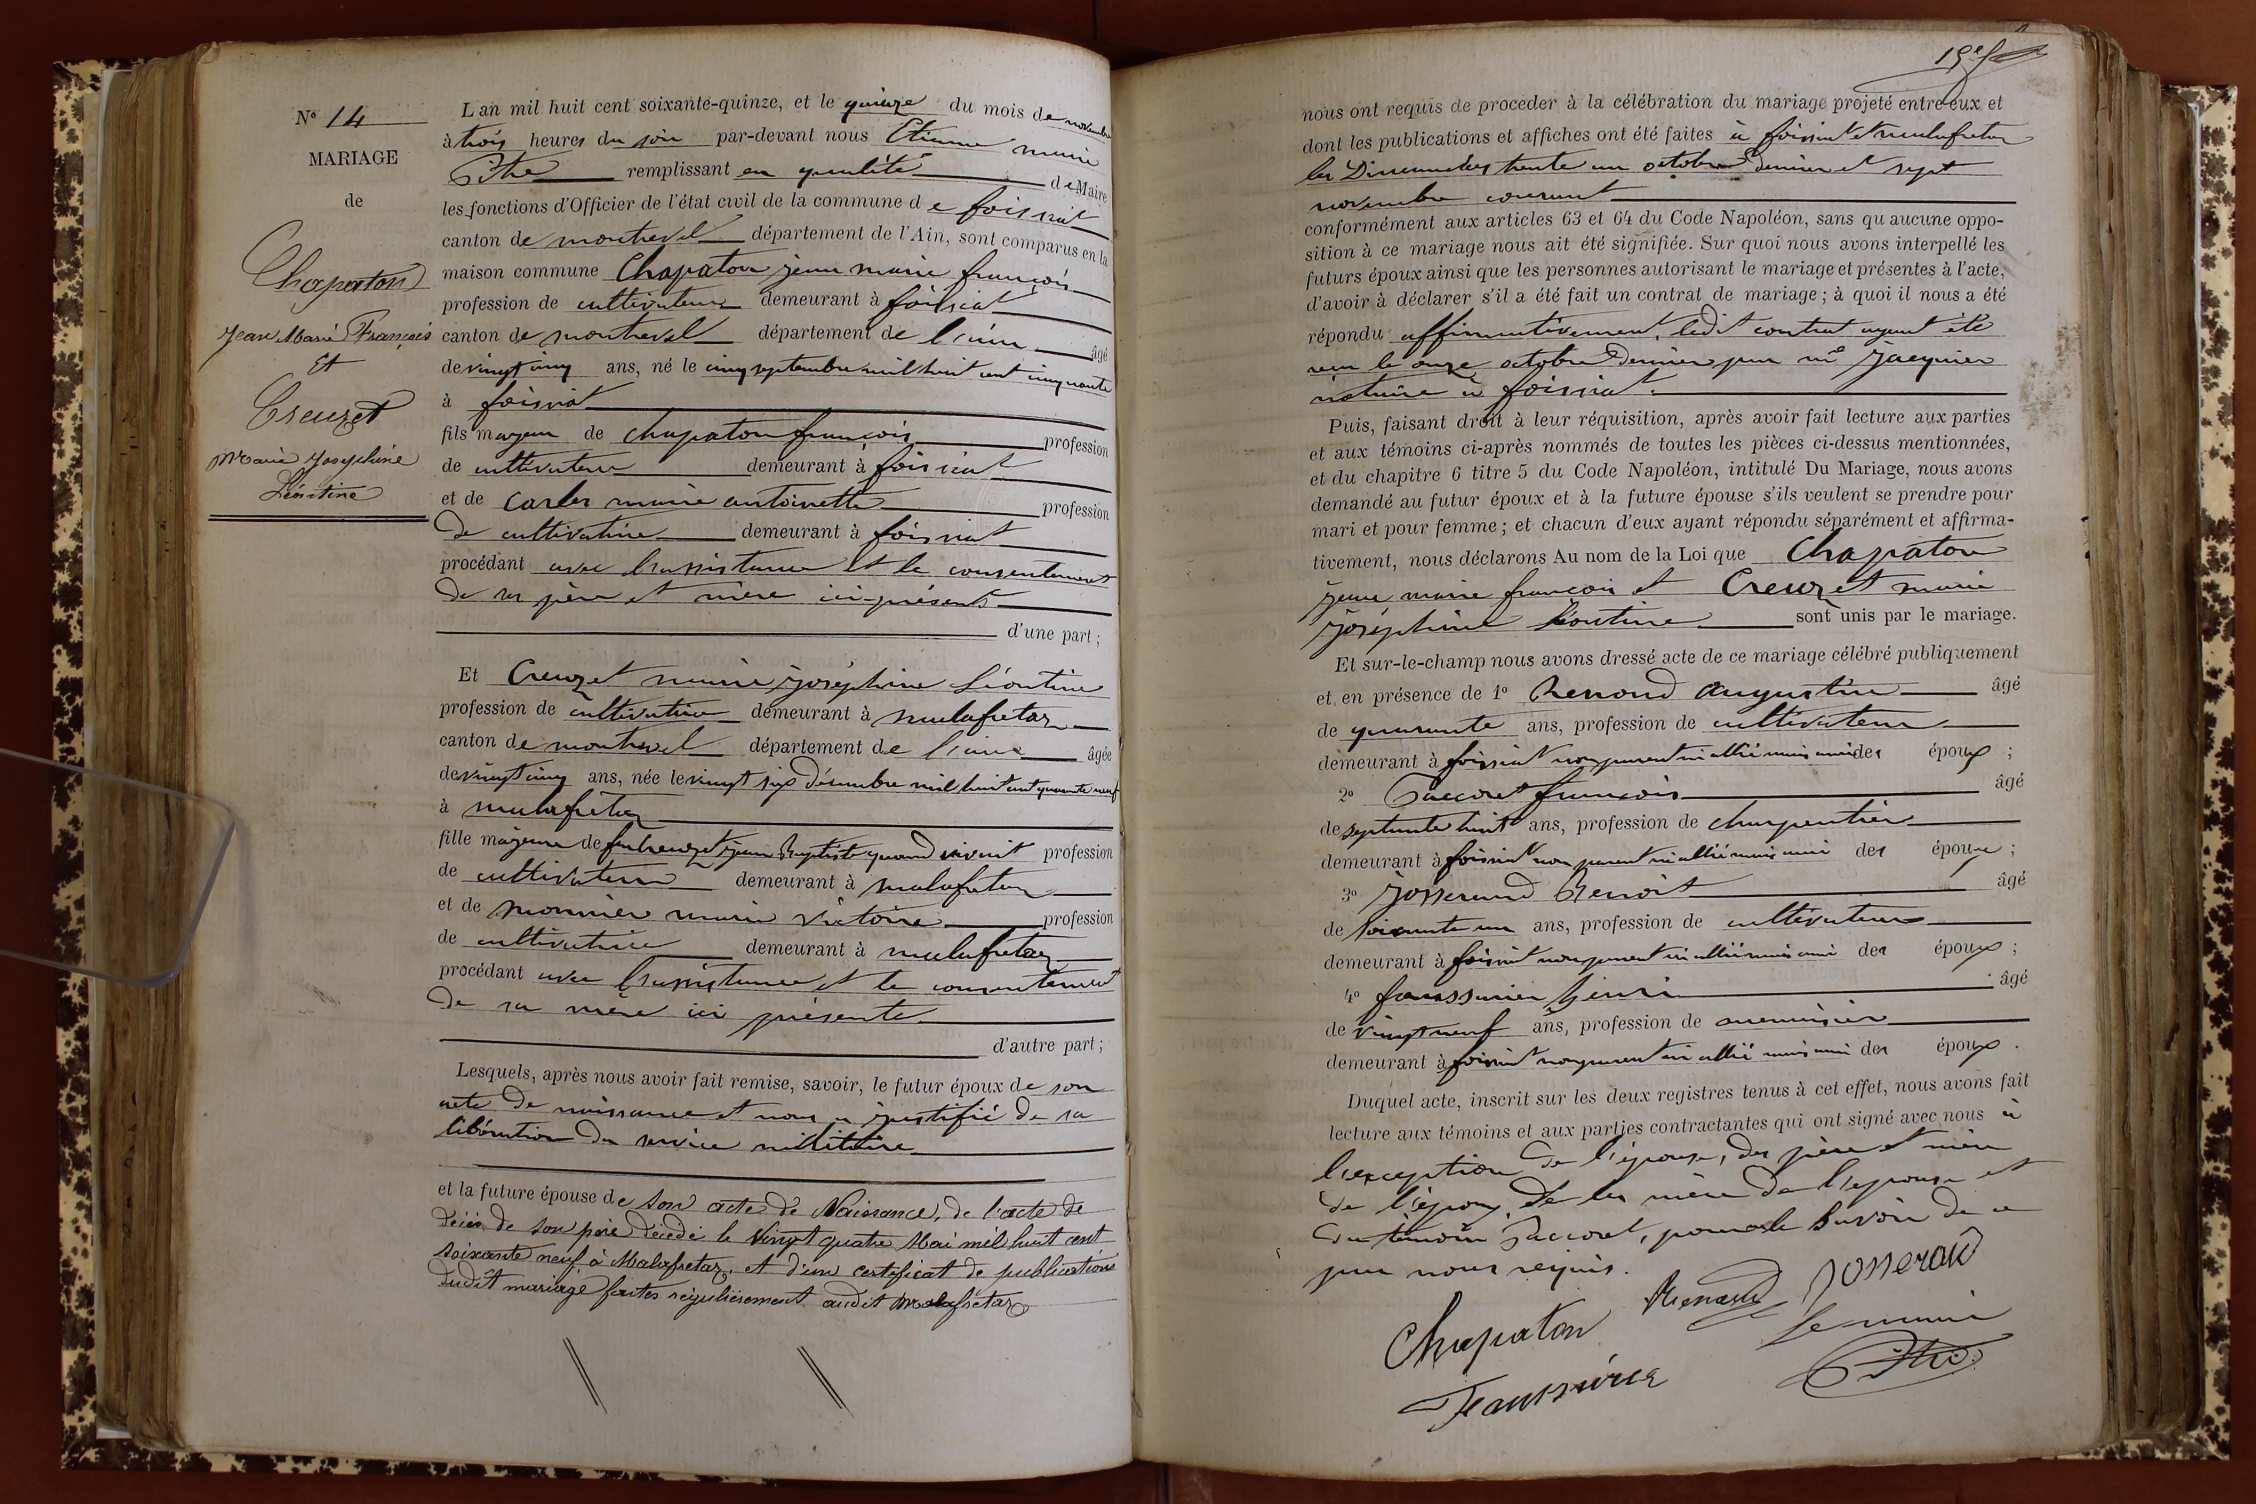 Nº 14
MARIAGE
de
Chapaton
Jean Marie François
Et
Creuzet
Marie Josephine
Léontine
L an mil huit cent soixante-quinze, et le quinze du mois de novembre
à trois heures du soir par-devant nous Etienne marie
Pitre remplissant en qualité de Maire
les fonctions d'Officier de l'état civil de la commune de foissiat
canton de montrevel département de l'Ain, sont comparus en la
maison commune Chapaton jean marie françois
profession de cultivateur demeurant à foissiat
canton de montrevel département de l'ain âgé
de vingt cinq ans, né le cinq septembre mil huit cent cinquante
à foissiat
fils majeur de chapaton françois profession
de cultivateur demeurant à foissiat
et de Carles marie antoinette profession
de cultivatrice demeurant à foissiat
procédant avec l'assistance et le consentement
de ses père et mère ici présents
d'une part ;
Et Creuzet marie joséphine Léontine
profession de cultivatrice demeurant à malafretaz
canton de montrevel département de l'ain âgée
de vingt cinq ans, née le vingt six décembre mil huit cent quarante neuf
à malafretaz
fille majeure de feu Creuzet jean Baptiste quand vivait profession
de cultivateur demeurant à malafretaz
et de monnier marie victoire profession
de cultivatrice demeurant à malafretaz
procédant avec l'assistance et le consentement
de sa mère ici présente
d'autre part ;
Lesquels, après nous avoir fait remise, savoir, le futur époux de son
acte de naissance et nous a justifié de sa
libération du service militaire
et la future épouse de son acte de Naissance, de l'acte de
décès de son père décédé le Vingt quatre Mai mil huit cent
soixante neuf à Malafretaz, et d'un certificat de publications
dudit mariage faites régulièrement audit Malafretaz
nous ont requis de procéder à la célébration du mariage projeté entre eux et
dont les publications et affiches ont été faites à foissiat et malafretaz
les Dimanches trente un octobre dernier et sept
novembre courant
conformément aux articles 63 et 64 du Code Napoléon, sans qu aucune oppo-
sition à ce mariage nous ait été signifiée. Sur quoi nous avons interpellé les
futurs époux ainsi que les personnes autorisant le mariage et présentes à l'acte,
d'avoir à déclarer s'il a été fait un contrat de mariage ; à quoi il nous a été
répondu affirmativement, ledit contrat ayant été
reçu le onze octobre dernier par mᵉ Jacquier
notaire à foissiat.
Puis, faisant droit à leur réquisition, après avoir fait lecture aux parties
et aux témoins ci-après nommés de toutes les pièces ci-dessus mentionnées,
et du chapitre 6 titre 5 du Code Napoléon, intitulé Du Mariage, nous avons
demandé au futur époux et à la future épouse s'ils veulent se prendre pour
mari et pour femme ; et chacun d'eux ayant répondu séparément et affirma-
tivement, nous déclarons Au nom de la Loi que Chapaton
jean marie françois et Creuzet marie
joséphine Léontine sont unis par le mariage.
Et sur-le-champ nous avons dressé acte de ce mariage célébré publiquement
et en présence de 1º Renoud augustin âgé
de quarante ans, profession de cultivateur
demeurant à foissiat non parent ni allié mais ami des époux ;
2º Paccoret françois âgé
de septante huit ans, profession de charpentier
demeurant à foissiat non parent ni allié mais ami des époux ;
3º Josserand Benoit âgé
de soixante un ans, profession de cultivateur
demeurant à foissiat non parent ni allié mais ami des époux ;
4º faussurier henri âgé
de vingt neuf ans, profession de menuisier
demeurant à foissiat non parent ni allié mais ami des époux .
Duquel acte, inscrit sur les deux registres tenus à cet effet, nous avons fait
lecture aux témoins et aux parties contractantes qui ont signé avec nous à
l'exception de l'épouse, des père et mère
de l'époux, de la mère de l'épouse et
du témoin Paccoret, pour ne le savoir de ce
par nous requis.
Chapaton Renoud Josserand
Le maire